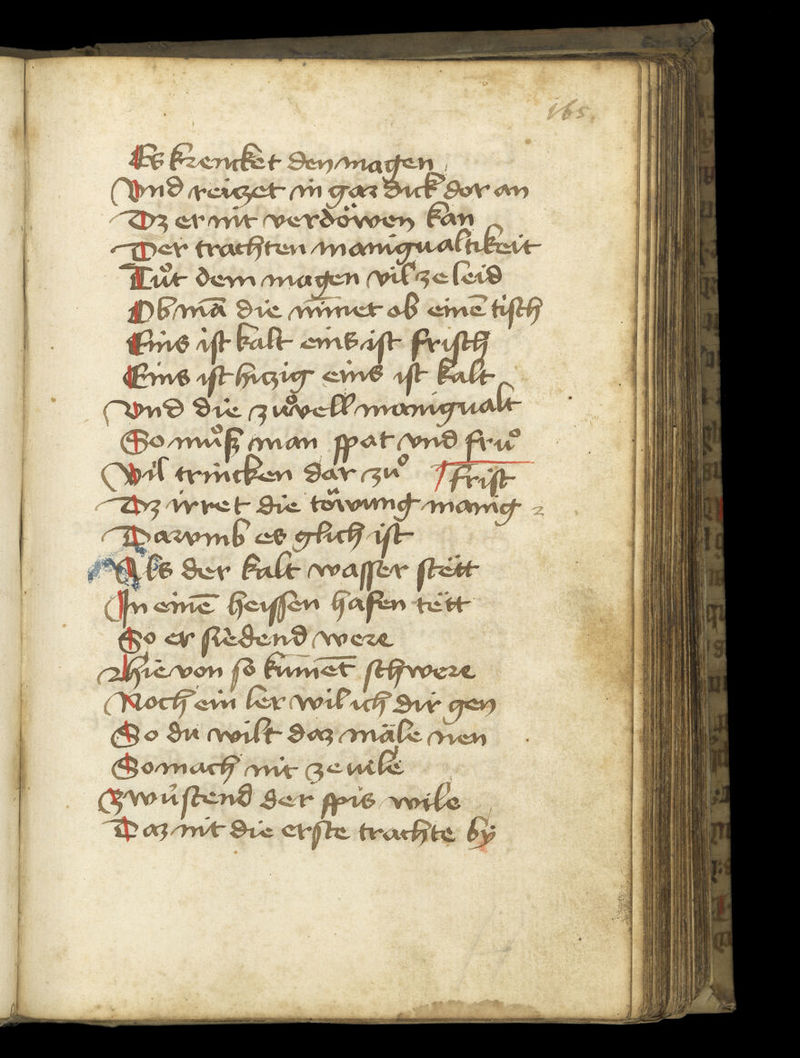 165.
Es krencket den magen
Vnd reitzet in gar dick dor an
Dz er nit verdöwen kan
Der trachten manigualtikeit
Tuͦt dem magen vil ze leid
Ob mā die nīmet ob einē tisch
Eins ist kalt eins ist frisch
Eins ist hitzig eins ist kalt
Vnd die zuͦuell manigualt
So muͦß man spat vnd fruͦ
Vil trincken dar zuͦ
frist
Dz irret die töwung manig
Darvmb es glich ist
Als der kalt wasser stëtt
In einē heissen hafen tëtt
So er siedend were
Hie von so kūmēt schwere
Noch ein ler wil ich dir gen
So du wilt daz mäle nen
So mach nit ze uile
Zwüstend der spis wile
Daz nit die erste trachte bÿ